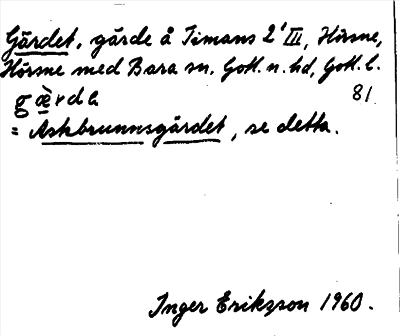 Gärdet, gärde å Timans 2¹ III, Hörsne,
Hörsne med Bara sn, Gotl. n. hd, Gotl. l.
gæ̀rda 81
= Askbrunnsgärdet, se detta.
Inger Eriksson 1960.